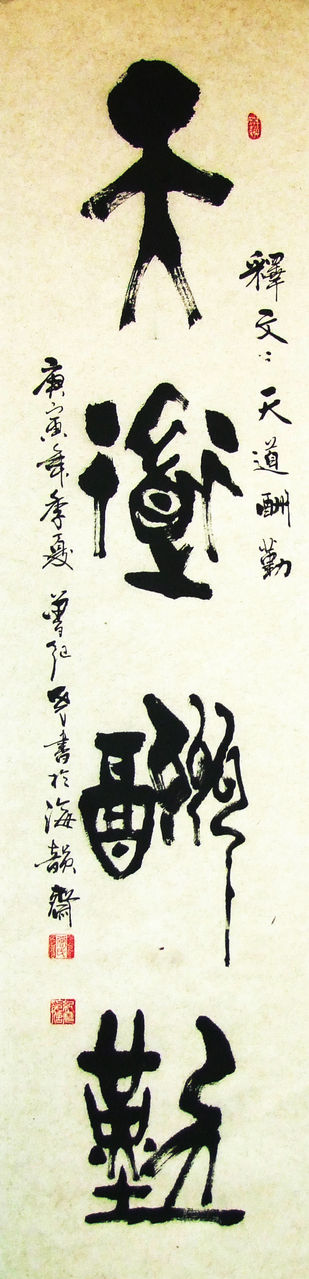 天道酬勤
释文：天道酬勤
庚寅年季夏曾纪民書於海韻齋